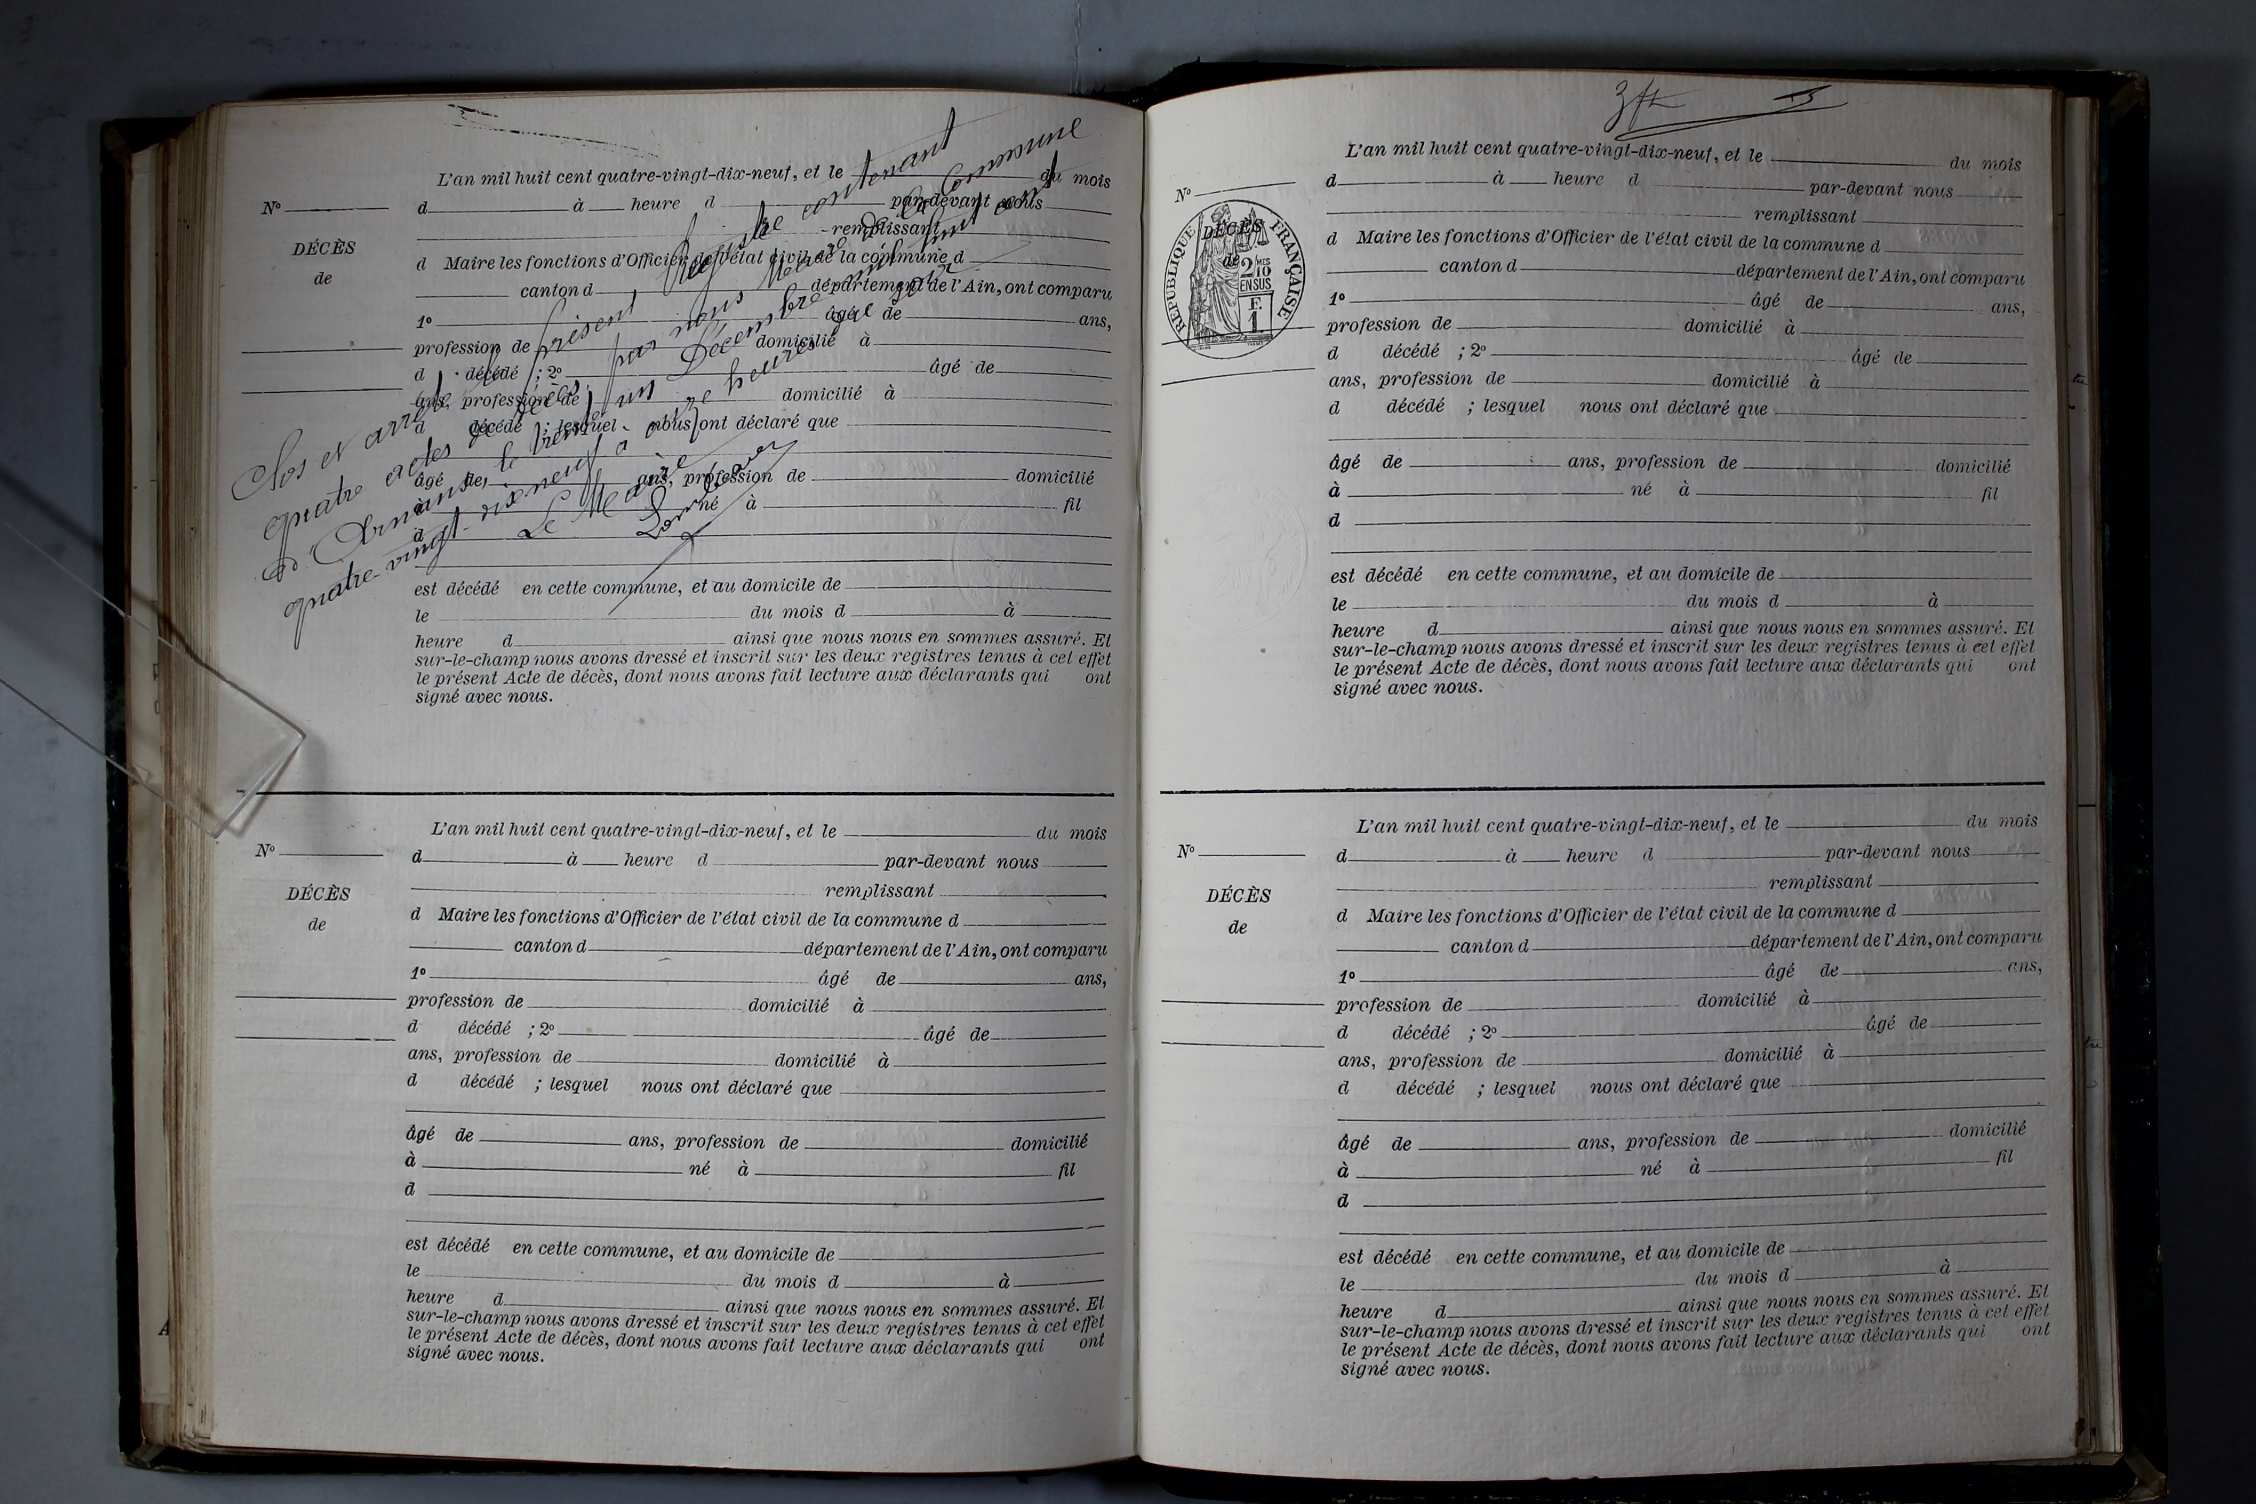 Clos et arrêté le présent Registre contenant
quatre actes de décès, par nous Maire de la Commune
d'Arnans, le trente un Décembre mil huit cent
quatre-vingt-dix neuf à onze heures du soir.
Le Maire
L'an mil huit cent quatre-vingt-dix-neuf, et le du mois
N° d à heure d par-devant nous
remplissant
DÉCÈS
d Maire les fonctions d'Officier de l'état civil de la commune d
de
canton d département de l'Ain, ont comparu
1° âgé de ans,
profession de domicilié à
d décédé ; 2° âgé de
ans, profession de domicilié à
d décédé ; lesquel nous ont déclaré que
âgé de ans, profession de domicilié
à né à fil
d
est décédé en cette commune, et au domicile de
le du mois d à
heure d ainsi que nous nous en sommes assuré. Et
sur-le-champ nous avons dressé et inscrit sur les deux registres tenus à cet effet
le présent Acte de décès, dont nous avons fait lecture aux déclarants qui ont
signé avec nous.
L'an mil huit cent quatre-vingt-dix-neuf, et le du mois
N° d à heure d par-devant nous
remplissant
DÉCÈS
d Maire les fonctions d'Officier de l'état civil de la commune d
de
canton d département de l'Ain, ont comparu
1° âgé de ans,
profession de domicilié à
d décédé ; 2° âgé de
ans, profession de domicilié à
d décédé ; lesquel nous ont déclaré que
âgé de ans, profession de domicilié
à né à fil
d
est décédé en cette commune, et au domicile de
le du mois d à
heure d ainsi que nous nous en sommes assuré. Et
sur-le-champ nous avons dressé et inscrit sur les deux registres tenus à cet effet
le présent Acte de décès, dont nous avons fait lecture aux déclarants qui ont
signé avec nous.
L'an mil huit cent quatre-vingt-dix-neuf, et le du mois
N° d à heure d par-devant nous
remplissant
RÉPUBLIQUE FRANÇAISE
2 MES
10
EN SUS
F.
1
DÉCÈS
d Maire les fonctions d'Officier de l'état civil de la commune d
de
canton d département de l'Ain, ont comparu
1° âgé de ans,
profession de domicilié à
d décédé ; 2° âgé de
ans, profession de domicilié à
d décédé ; lesquel nous ont déclaré que
âgé de ans, profession de domicilié
à né à fil
d
est décédé en cette commune, et au domicile de
le du mois d à
heure d ainsi que nous nous en sommes assuré. Et
sur-le-champ nous avons dressé et inscrit sur les deux registres tenus à cet effet
le présent Acte de décès, dont nous avons fait lecture aux déclarants qui ont
signé avec nous.
L'an mil huit cent quatre-vingt-dix-neuf, et le du mois
N° d à heure d par-devant nous
remplissant
DÉCÈS
d Maire les fonctions d'Officier de l'état civil de la commune d
de
canton d département de l'Ain, ont comparu
1° âgé de ans,
profession de domicilié à
d décédé ; 2° âgé de
ans, profession de domicilié à
d décédé ; lesquel nous ont déclaré que
âgé de ans, profession de domicilié
à né à fil
d
est décédé en cette commune, et au domicile de
le du mois d à
heure d ainsi que nous nous en sommes assuré. Et
sur-le-champ nous avons dressé et inscrit sur les deux registres tenus à cet effet
le présent Acte de décès, dont nous avons fait lecture aux déclarants qui ont
signé avec nous.